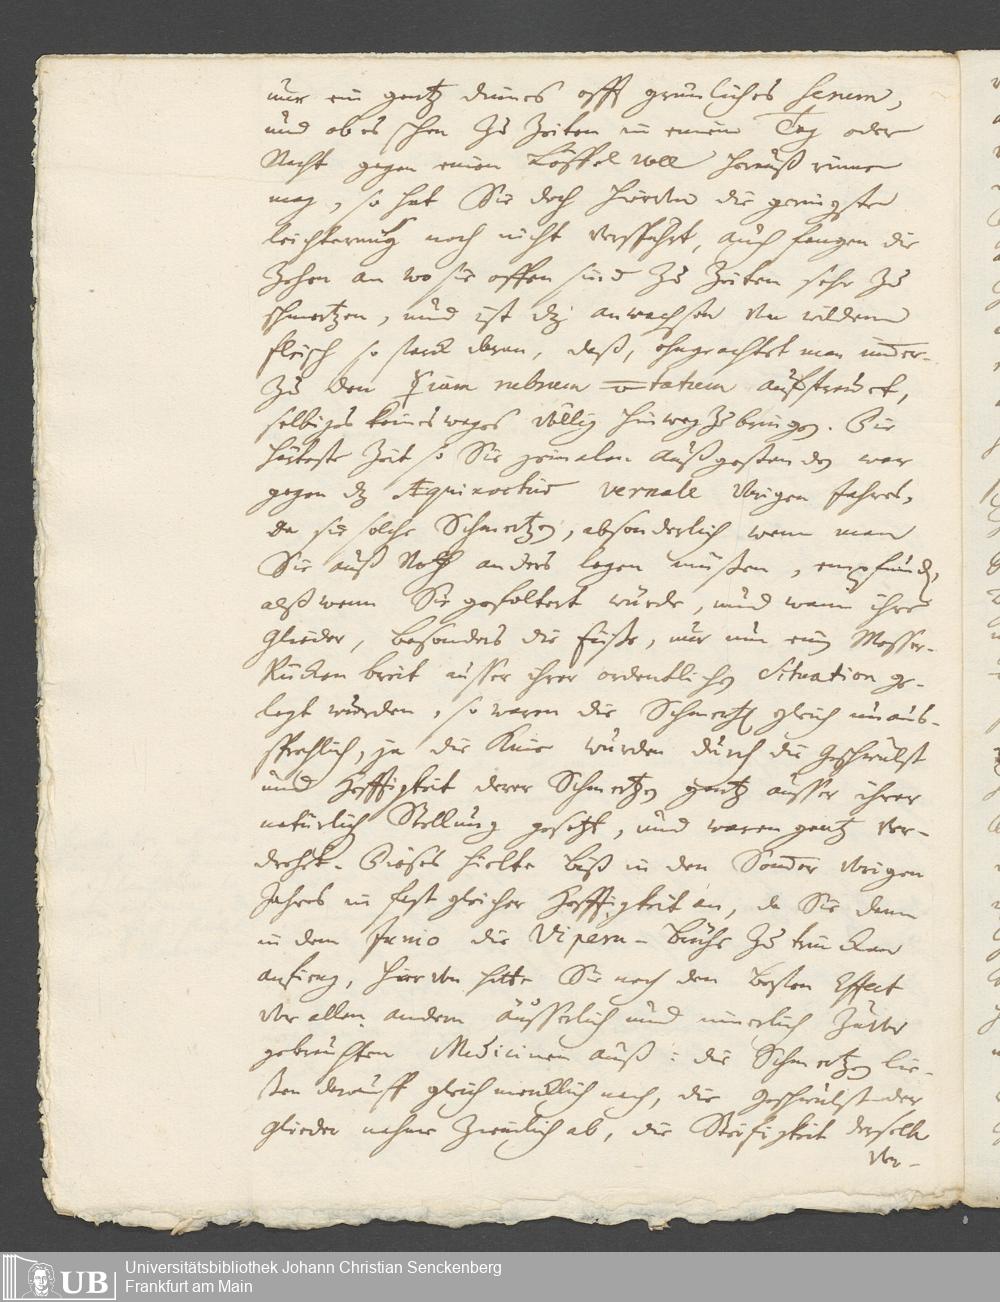 nur ein gantz dünnes offt grünliches Serum,
und ob es schon zu Zeiten in einem Tag oder
Nacht gegen einen Löffel voll herauß rinnen
mag, so hat Sie doch hiervon die geringste
leichterung noch nicht verspührt, auch fangen die
Zehen an wo sie offen sind zu Zeiten sehr zu
schmertzen, und ist dz anwachsen von wildem
fleisch so starck daran, daß, ohngeachtet man
zu den rubrum aufstreuet,
selbiges keines weges völlig hinweg zu bringen. Die
härteste Zeit so Sie jemalen außgestanden war
gegen dz Æquinoctium vernale vorigen Jahres,
da sie solche Schmertzen, absonderlich wenn man
Sie auß Noth anders legen müßen, empfunden,
alß wenn Sie gefoltert würde, und wann ihre
Glieder, besonders die füße, nur um ein Messer-
Rücken breit ausser ihrer ordentlichen Situation ge-
legt wurden, so waren die Schmertzen gleich unaus-
sprechlich, ja die Knie wurden durch die Geschwulst
und Hefftigkeit derer Schmertzen gantz ausser ihrer
natürlich Stellung gesetzt, und waren gantz ver-
drehet. Dieses hielte biß in den Sommer vorigen
Jahres in fast gleicher Hefftigkeit an, da Sie dann
in dem Junio die Vipern-Brühe zu trincken
anfieng, hiervon hatte Sie noch den besten Effect
vor allen andern äusserlich und innerlich zuvor
gebrauchten Medicinen auß: die Schmertzen lie-
ßen darauff gleich mercklich nach, die Geschwulst der
Glieder nahme ziemlich ab, die Steifigkeit derselben
ver-
Universitätsbibliothek Johann Christian Senckenberg
UB Frankfurt am Main